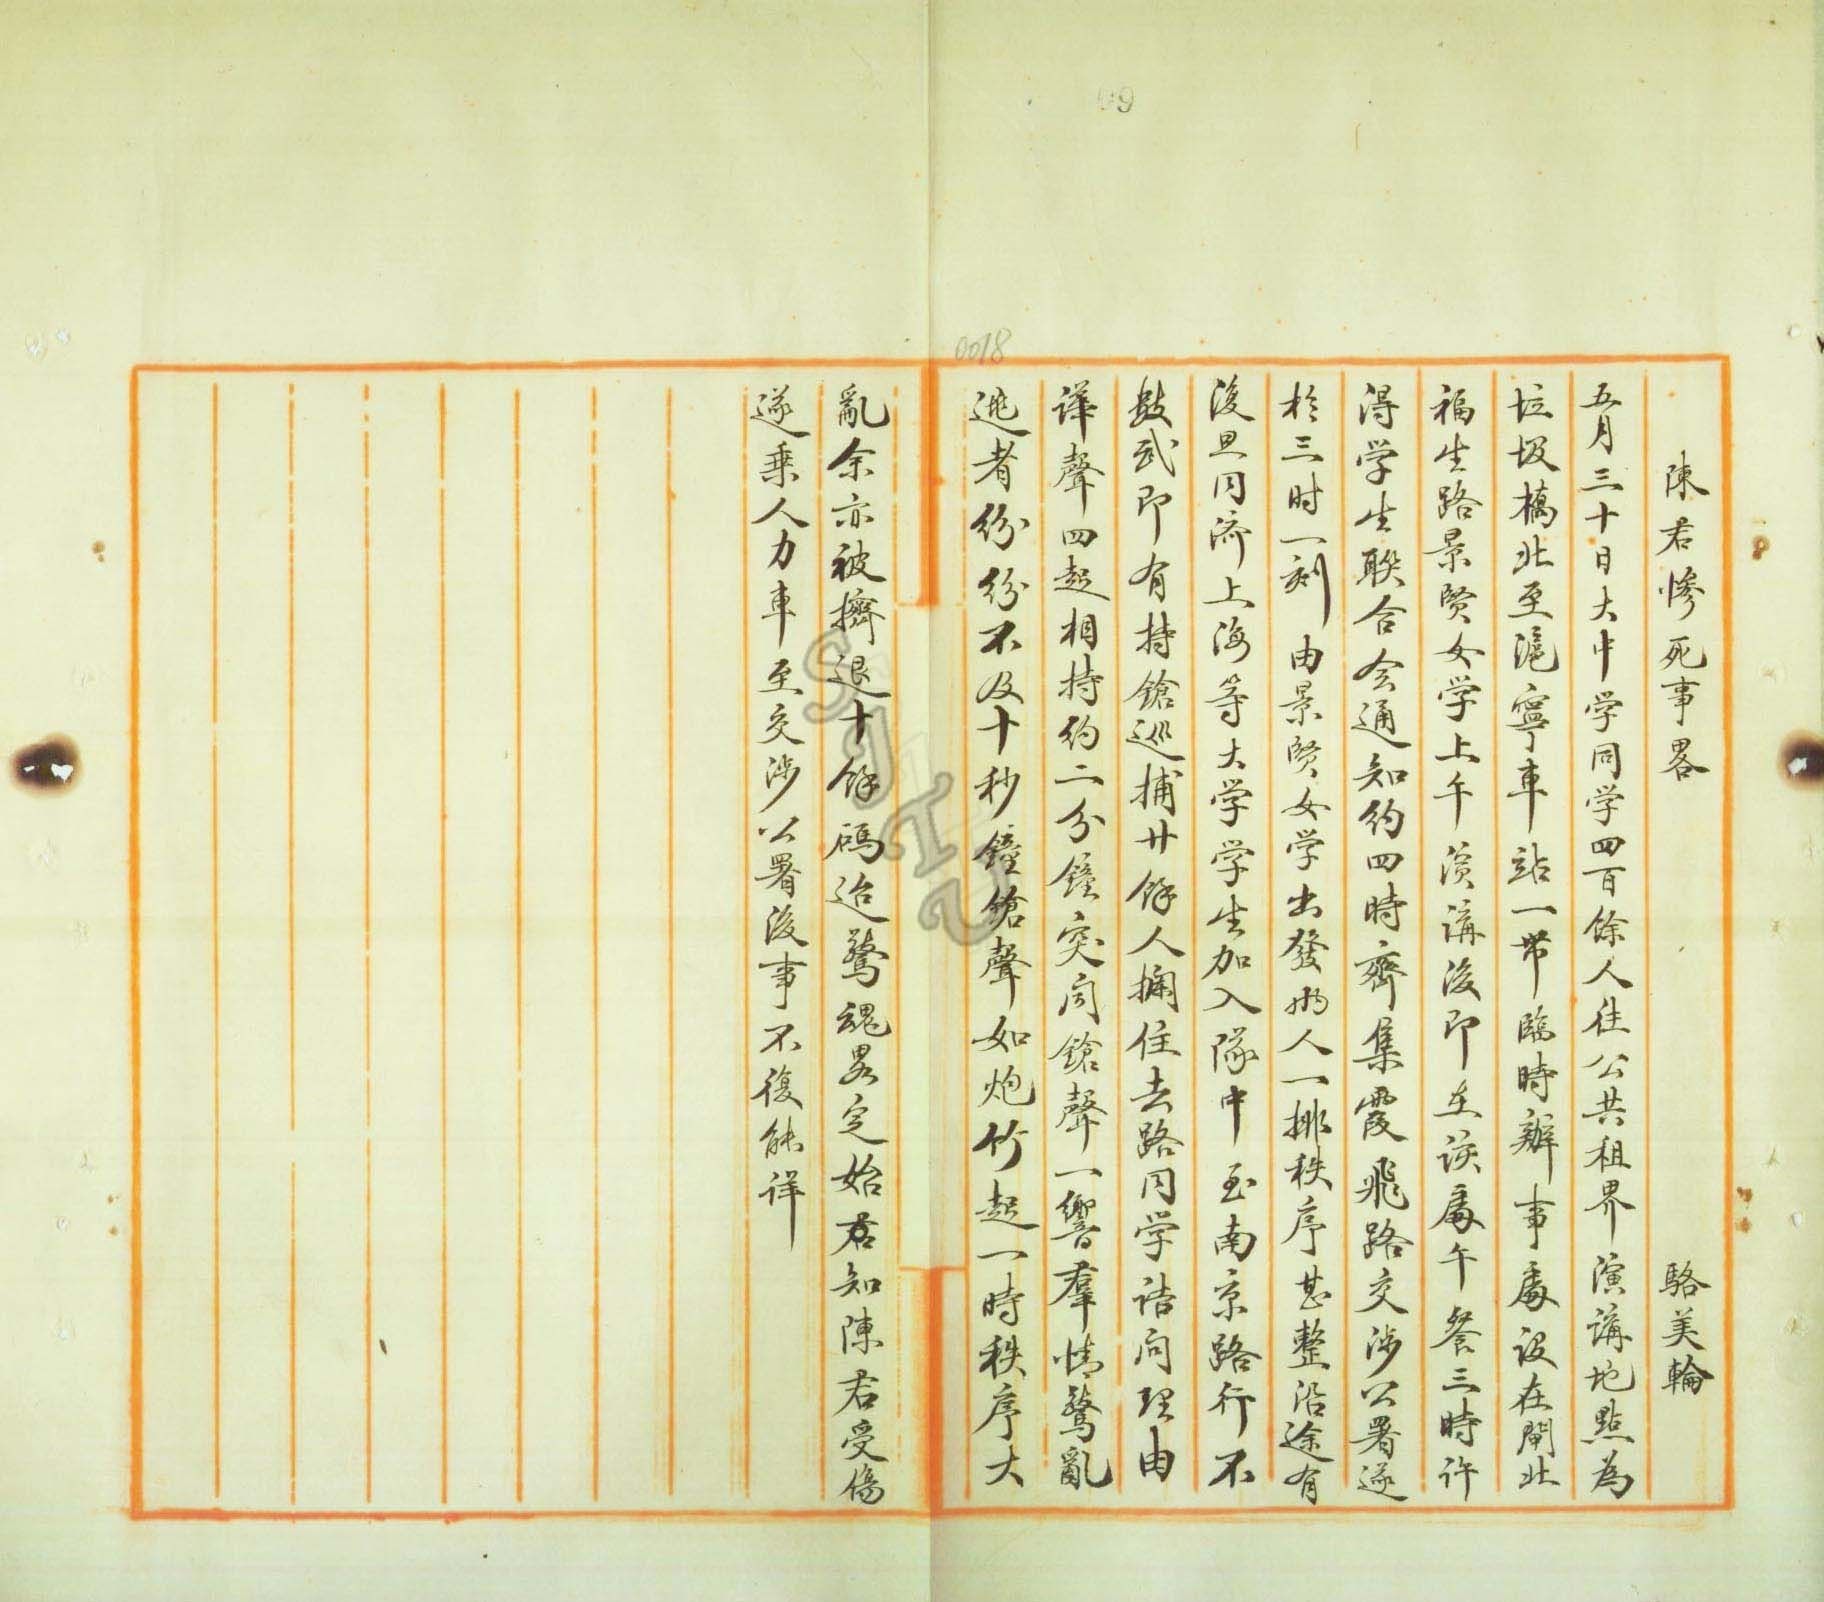 陳君慘死事畧 駱美輪
五月三十日大中学同学四百餘人往公共租界演講地點為
垃圾橋北至滬寧車站一带臨時辦事處设在閘北
福生路景贤女学上午演講後即在该處午餐三時许
得学生聯合会通知约四時齊集霞飛路交涉公署遂
於三时一刻由景贤女学出發两人一排秩序甚整沿途有
復旦同济上海等大学学生加入隊中至南京路行不
数武即有持鎗巡捕廿餘人攔住去路同学诘问理由
譁聲四起相持约二分鐘突闻鎗聲一響羣情驚亂
逃者纷纷不及十秒鐘鎗聲如炮竹起一時秩序大
亂余亦被擠退十餘碼迨驚魂畧定始君知陳君受傷
遂乘人力車至交涉公署後事不復能详
0018
69
SJTU